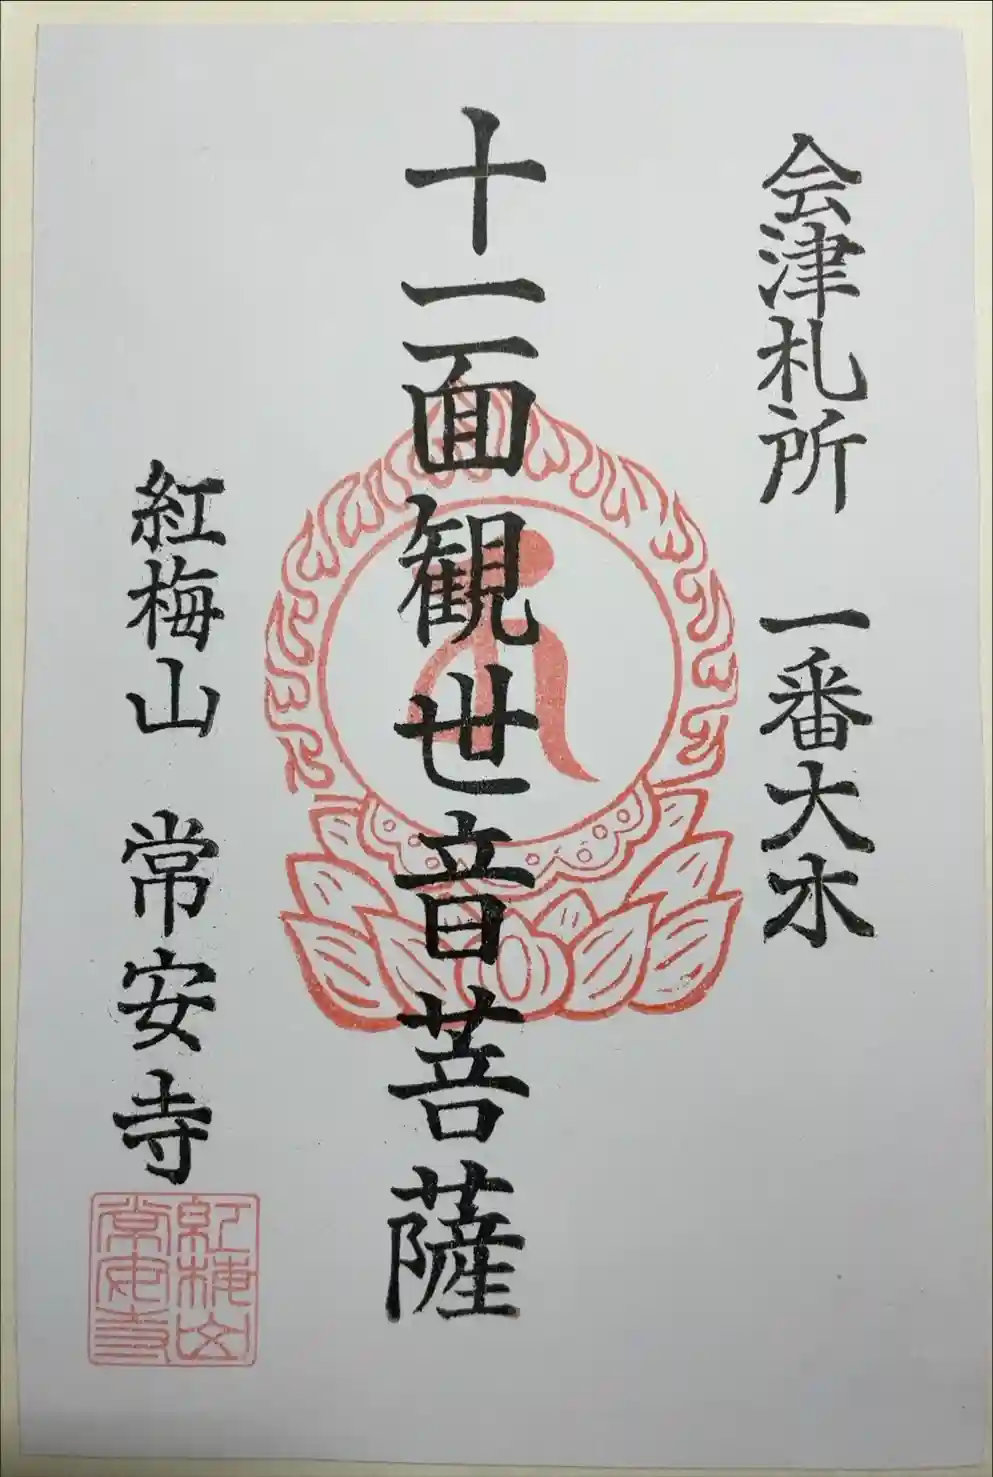 会津札所　一番大木
十一面観世音菩薩
紅梅山　常安寺
紅梅山
常安寺